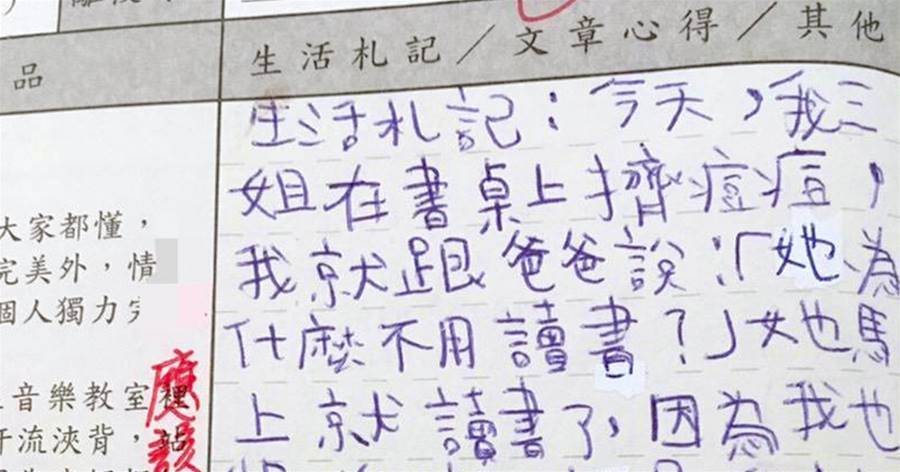 品
生活札記／文章心得／其他
生活札記：今天，我三
姐在書桌上擠痘痘，
我就跟爸爸說：「她為
什麼不用讀書？」她也馬
上就讀書了，因為我也
大家都懂，
完美外，情
個人獨力完
音樂教室裡
流浹背，站
應該